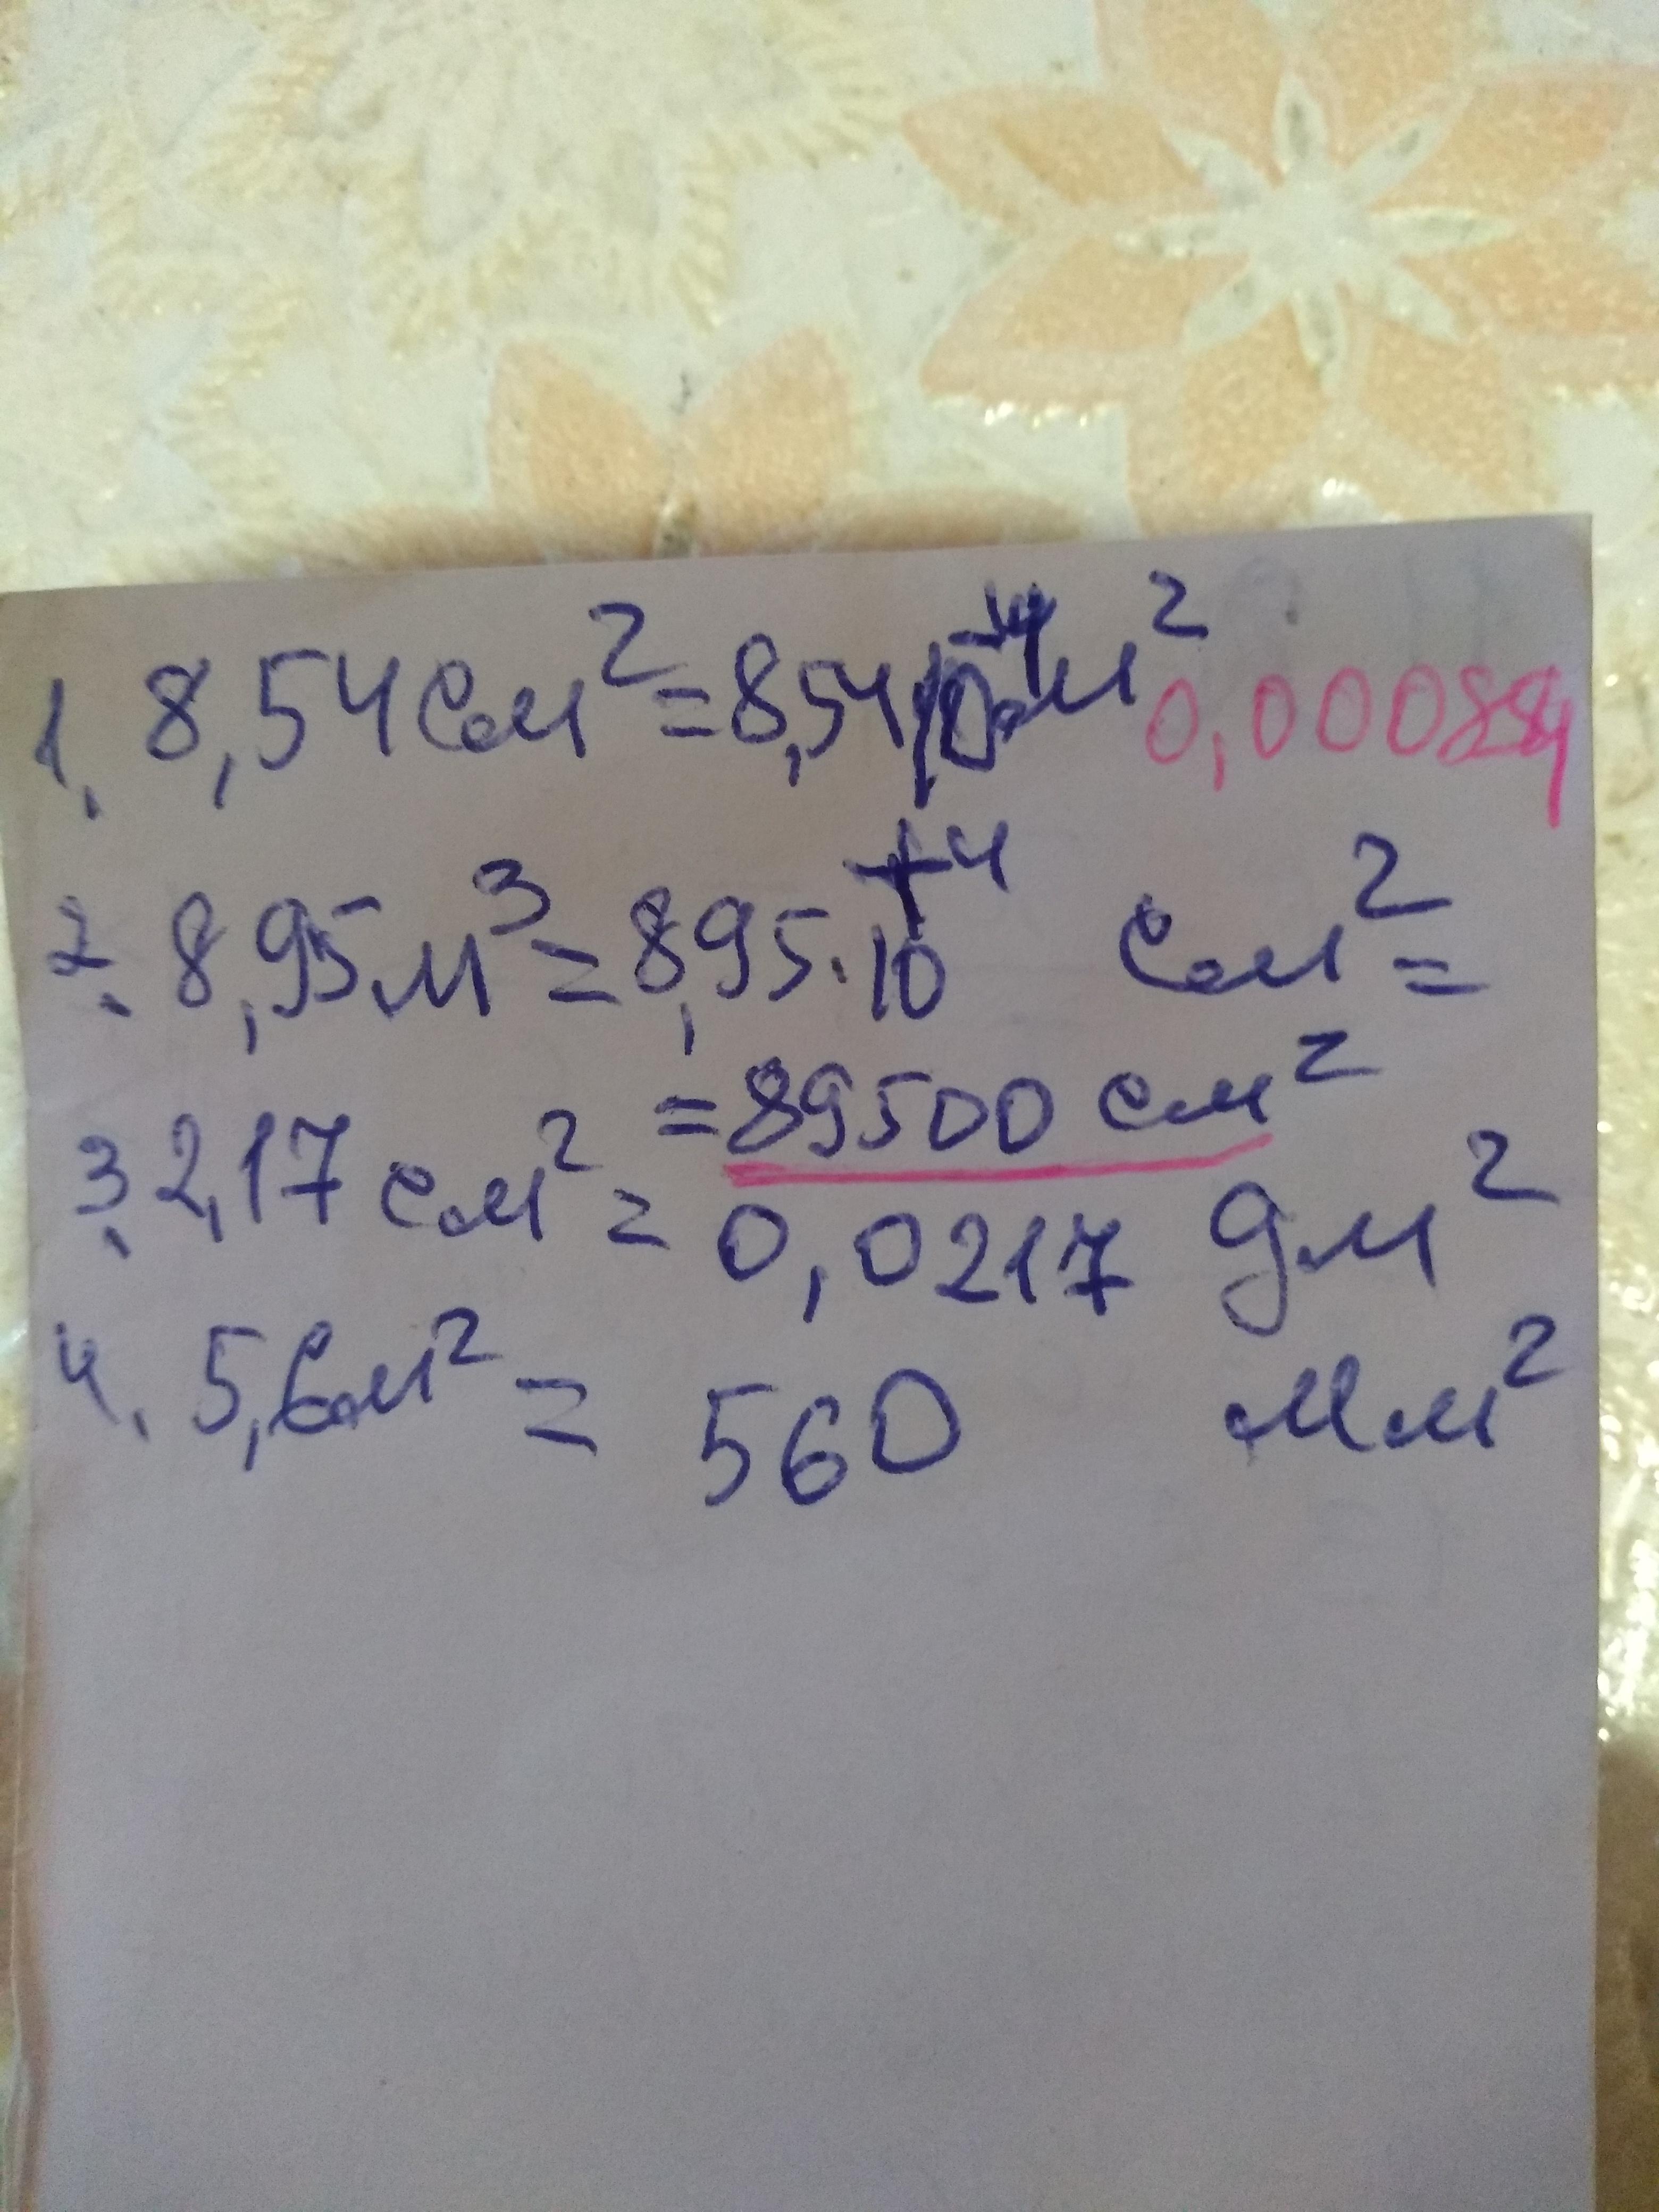 1. 8,54 см² = 8,54·10⁻⁴ м² 0,000854
2. 8,95 м³ = 8,95·10⁺⁴ см² =
= 89500 см²
3. 2,17 см² = 0,0217 дм²
4. 5,6 см² = 560 мм²